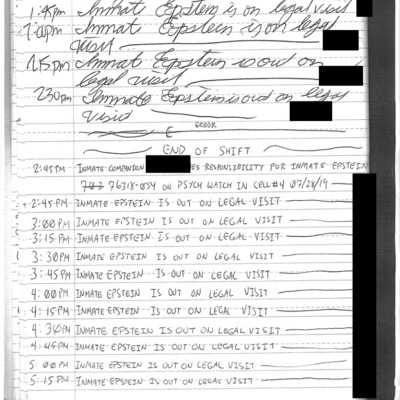 1:45pm Inmate Epstein is on legal visit
2:00pm Inmate Epstein is on legal
visit
2:15pm Inmate Epstein is out on
legal visit
2:30pm Inmate Epstein is out on legal
visit
E ERROR
END OF SHIFT
2:45PM INMATE COMPANION ES RESPONSIBILITY FOR INMATE EPSTEIN
76318-054 ON PSYCH WATCH IN CELL #4 07/28/19
2:45PM INMATE EPSTEIN IS OUT ON LEGAL VISIT
3:00PM INMATE EPSTEIN IS OUT ON LEGAL VISIT
3:15PM INMATE EPSTEIN IS OUT ON LEGAL VISIT
3:30PM INMATE EPSTEIN IS OUT ON LEGAL VISIT
3:45PM INMATE EPSTEIN IS OUT ON LEGAL VISIT
4:00PM INMATE EPSTEIN IS OUT ON LEGAL VISIT
4:15PM INMATE EPSTEIN IS OUT ON LEGAL VISIT
4:30PM INMATE EPSTEIN IS OUT ON LEGAL VISIT
4:45PM INMATE EPSTEIN IS OUT ON LEGAL VISIT
5:00PM INMATE EPSTEIN IS OUT ON LEGAL VISIT
5:15PM INMATE EPSTEIN IS OUT ON LEGAL VISIT